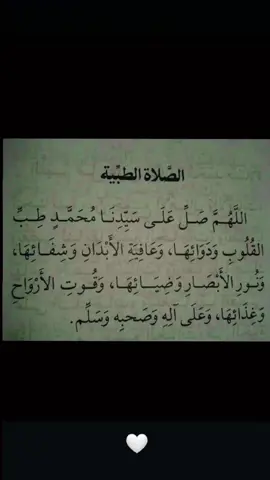 الصَّلاة الطبِّية
اللَّهُمَّ صَلِّ عَلَى سَيِّدِنَا مُحَمَّدٍ طِبِّ
القُلُوبِ وَدَوَائِهَا، وَعَافِيَةِ الأَبْدَانِ وَشِفَائِهَا،
وَنُورِ الأَبْصَارِ وَضِيَائِهَا، وَقُوتِ الأَرْوَاحِ
وَغِذَائِهَا، وَعَلَى آلِهِ وَصَحبِه وَسَلِّم.